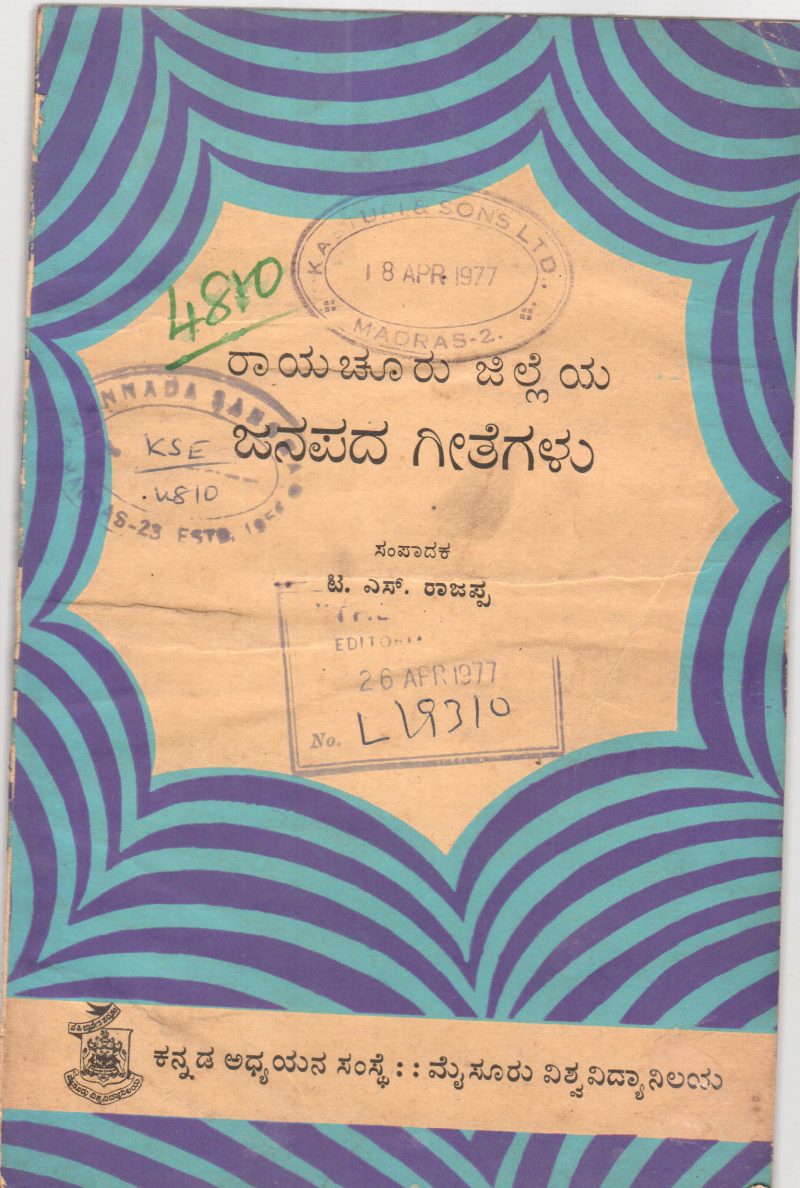 KASTURI & SONS LTD.,
18 APR 1977
MADRAS-2.
4810
ರಾಯಚೂರು ಜಿಲ್ಲೆಯ
ಜನಪದ ಗೀತೆಗಳು
KSE
4810
-23 ESTD. 1956
ಸಂಪಾದಕ
ಟಿ. ಎಸ್. ರಾಜಪ್ಪ
26 APR 1977
No. L49310
ಕನ್ನಡ ಅಧ್ಯಯನ ಸಂಸ್ಥೆ :: ಮೈಸೂರು ವಿಶ್ವವಿದ್ಯಾನಿಲಯ